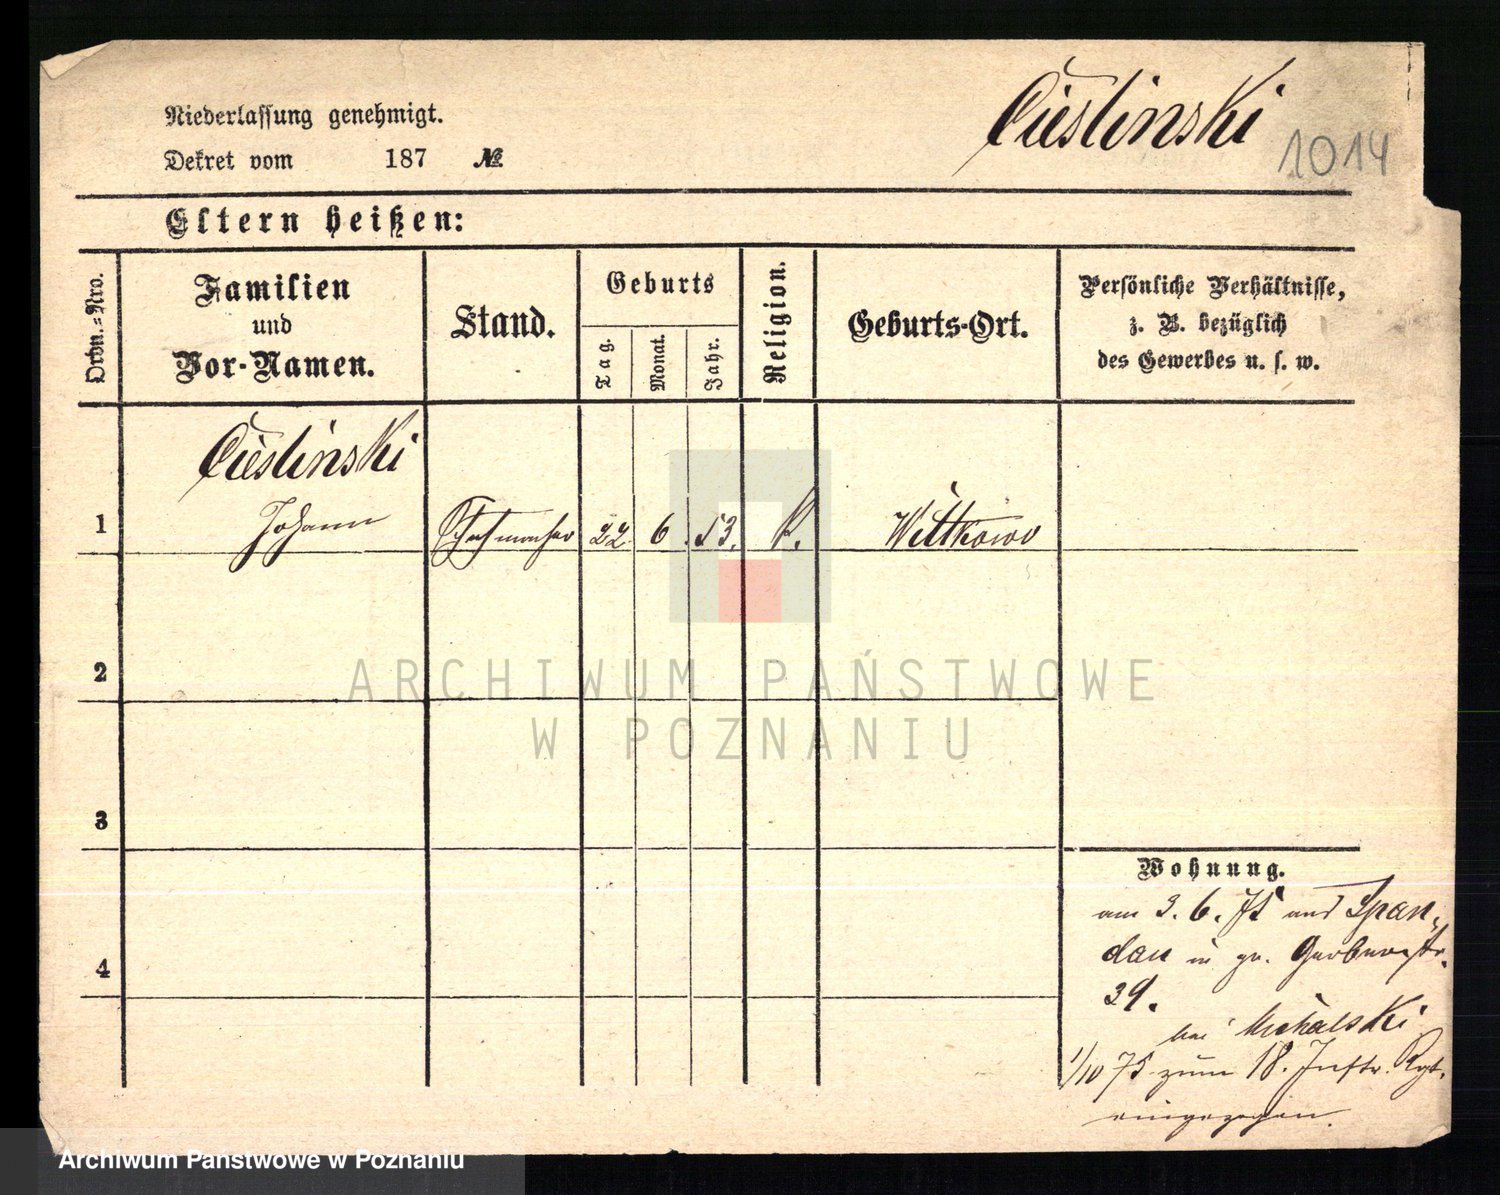 Niederlassung genehmigt.
Cieslinski
Dekret vom 187 №
1014
Eltern heißen:
Ordn.-Nro.
Familien
und
Vor-Namen.
Stand.
Geburts
Tag.
Monat.
Jahr.
Religion.
Geburts-Ort.
Persönliche Verhältnisse,
z. B. bezüglich
des Gewerbes u. s. w.
Cieslinski
1 Johann Schuhmacher 22. 6. 53. K. Wittkowo
2
ARCHIWUM PAŃSTWOWE
W POZNANIU
3
Wohnung.
am 3. 6. 75 aus Span-
dau in gr. Gerberstr.
39.
4
bei Michalski
1/10 75 zum 18. Inftr. Rgt.
eingezogen.
Archiwum Państwowe w Poznaniu